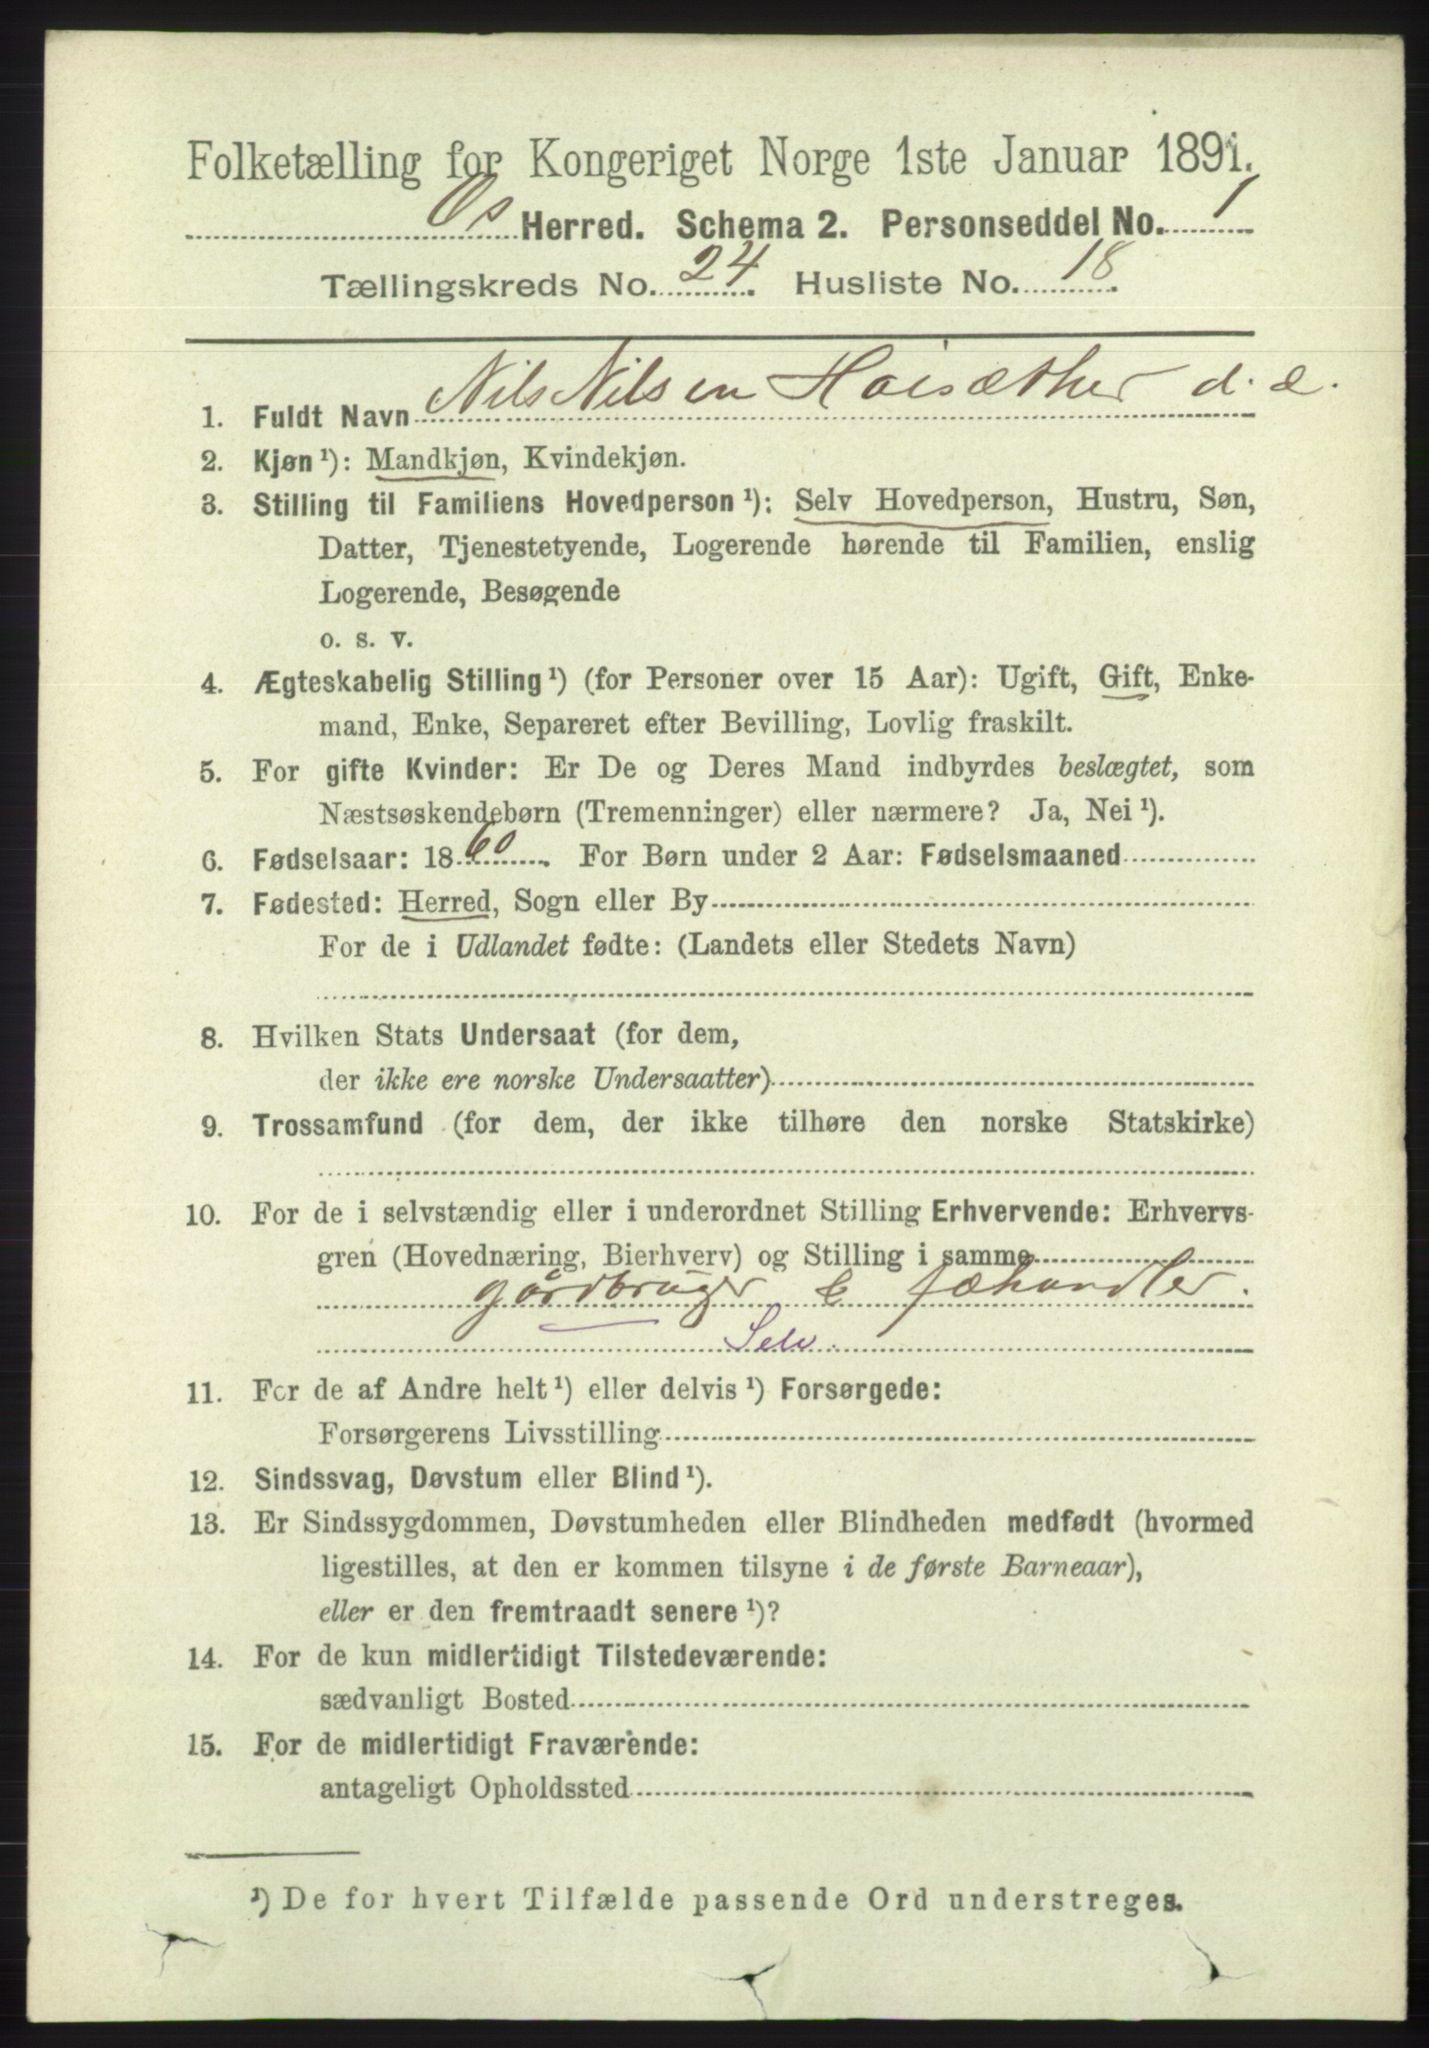 Folketælling for Kongeriget Norge 1ste Januar 1891.
Os Herred. Schema 2. Personseddel No. 1
Tællingskreds No. 24. Husliste No. 18.
1. Fuldt Navn Nils Nilsen Hoisæther d. æ.
2. Kjøn ¹): Mandkjøn, Kvindekjøn.
3. Stilling til Familiens Hovedperson ¹): Selv Hovedperson, Hustru, Søn,
Datter, Tjenestetyende, Logerende hørende til Familien, enslig
Logerende, Besøgende
o. s. v.
4. Ægteskabelig Stilling ¹) (for Personer over 15 Aar): Ugift, Gift, Enke-
mand, Enke, Separeret efter Bevilling, Lovlig fraskilt.
5. For gifte Kvinder: Er De og Deres Mand indbyrdes beslægtet, som
Næstsøskendebørn (Tremenninger) eller nærmere? Ja, Nei ¹).
6. Fødselsaar: 1860. For Børn under 2 Aar: Fødselsmaaned
7. Fødested: Herred, Sogn eller By
For de i Udlandet fødte: (Landets eller Stedets Navn)
8. Hvilken Stats Undersaat (for dem,
der ikke ere norske Undersaatter)
9. Trossamfund (for dem, der ikke tilhøre den norske Statskirke)
10. For de i selvstændig eller i underordnet Stilling Erhvervende: Erhvervs-
gren (Hovednæring, Bierhverv) og Stilling i samme
gårdbruger & fæhandler.
Selv.
11. For de af Andre helt ¹) eller delvis ¹) Forsørgede:
Forsørgerens Livsstilling
12. Sindssvag, Døvstum eller Blind ¹).
13. Er Sindssygdommen, Døvstumheden eller Blindheden medfødt (hvormed
ligestilles, at den er kommen tilsyne i de første Barneaar),
eller er den fremtraadt senere ¹)?
14. For de kun midlertidigt Tilstedeværende:
sædvanligt Bosted
15. For de midlertidigt Fraværende:
antageligt Opholdssted
¹) De for hvert Tilfælde passende Ord understreges.